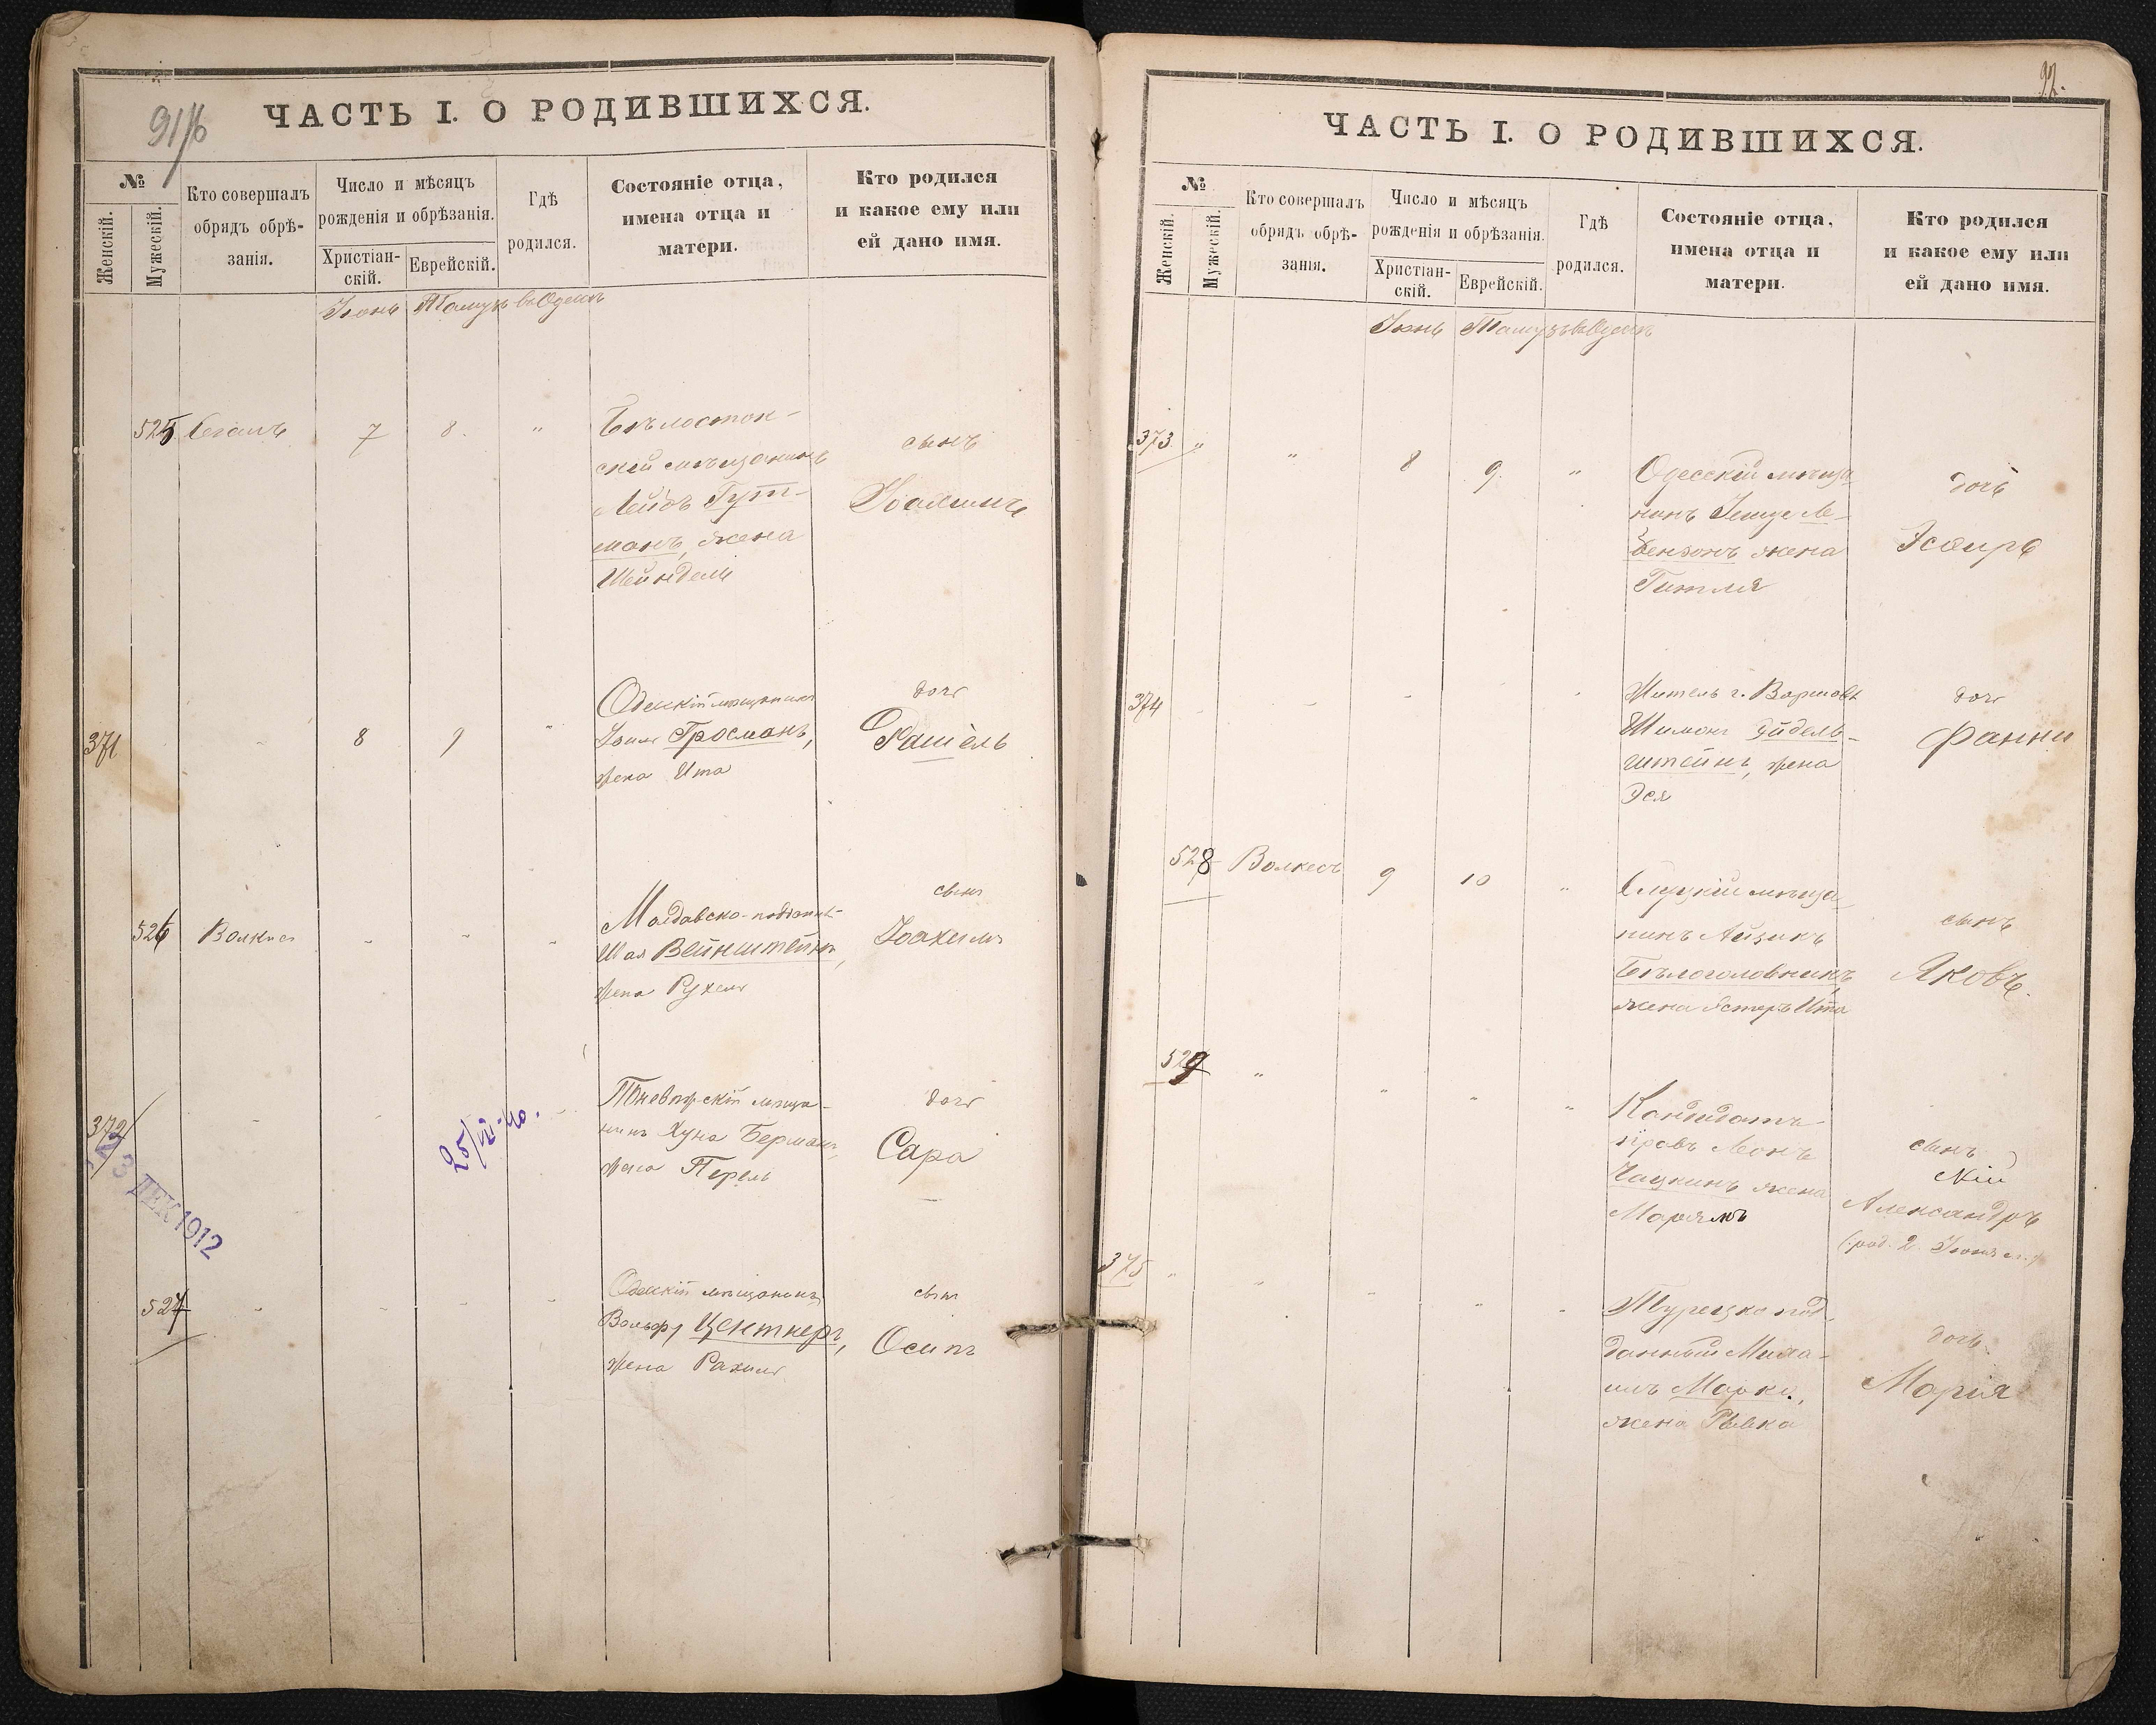 91/б
ЧАСТЬ I. О РОДИВШИХСЯ.
№
Женскій.
Мужескій.
Кто совершалъ
обрядъ обрѣ-
занія.
Число и мѣсяцъ
рожденія и обрѣзанія.
Христіан-
скій.
Еврейскій.
Гдѣ
родился.
Состояніе отца,
имена отца и
матери.
Кто родился
и какое ему или
ей дано имя.
Іюнь Тамузъ въ Одессѣ
525 7 8. "
Бѣлосток-
скій мѣщанинъ
Лейбъ Гут-
манъ, жена
Шейндель
сынъ
Іоахимъ
371 8 9
Одесскій мѣщанинъ
Гросманъ,
жена Ита
дочь
Рашель
526 Волкисъ
Молдавско-поддан.
Шая Вейнштейнъ,
жена Рухель
сынъ
Іоахимъ
372
мѣща-
нинъ Хуна Берманъ,
жена Перель
дочь
Сара
25/VII-40.
23 ДЕК 1912
527
Одесскій мѣщанинъ
Вольфъ Центнеръ,
жена Рахиль
сынъ
Осипъ
92.
ЧАСТЬ I. О РОДИВШИХСЯ.
№
Женскій.
Мужескій.
Кто совершалъ
обрядъ обрѣ-
занія.
Число и мѣсяцъ
рожденія и обрѣзанія.
Христіан-
скій.
Еврейскій.
Гдѣ
родился.
Состояніе отца,
имена отца и
матери.
Кто родился
и какое ему или
ей дано имя.
Іюнь Тамузъ въ Одессѣ
373 " " 8 9. "
Одесскій мѣща-
нинъ Ле-
бензонъ жена
Гитля
дочь
Эсѳирь
374
Житель г. Варшавы
Шимонъ Эйдель-
штейнъ, жена
Эся
дочь
Фанни
528 Волкесъ 9 10 "
Слуцкій мѣща-
нинъ Айзикъ
Бѣлоголовникъ,
жена Эстеръ Ита
сынъ
Яковъ.
529 " " " "
Кандидатъ
правъ Леонъ
Чацкинъ жена
Маріямъ
сынъ
Александръ
(род. 2. Іюня
375 "
Турецко под-
данный Миха-
илъ Марки.,
жена Ривка
дочь
Марія